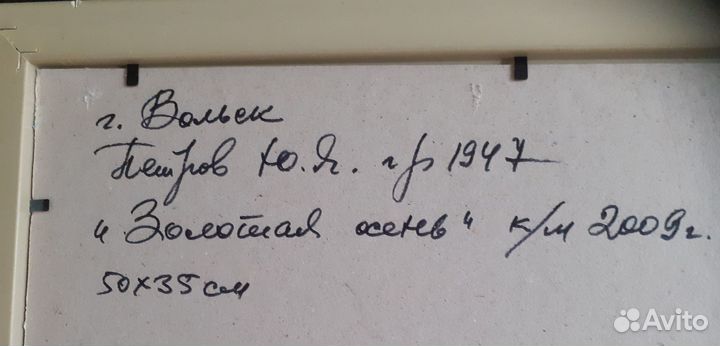 г. Вольск
Петров Ю.Я. гр 1947
"Золотая осень" к/м 2009г.
50х35см
Avito